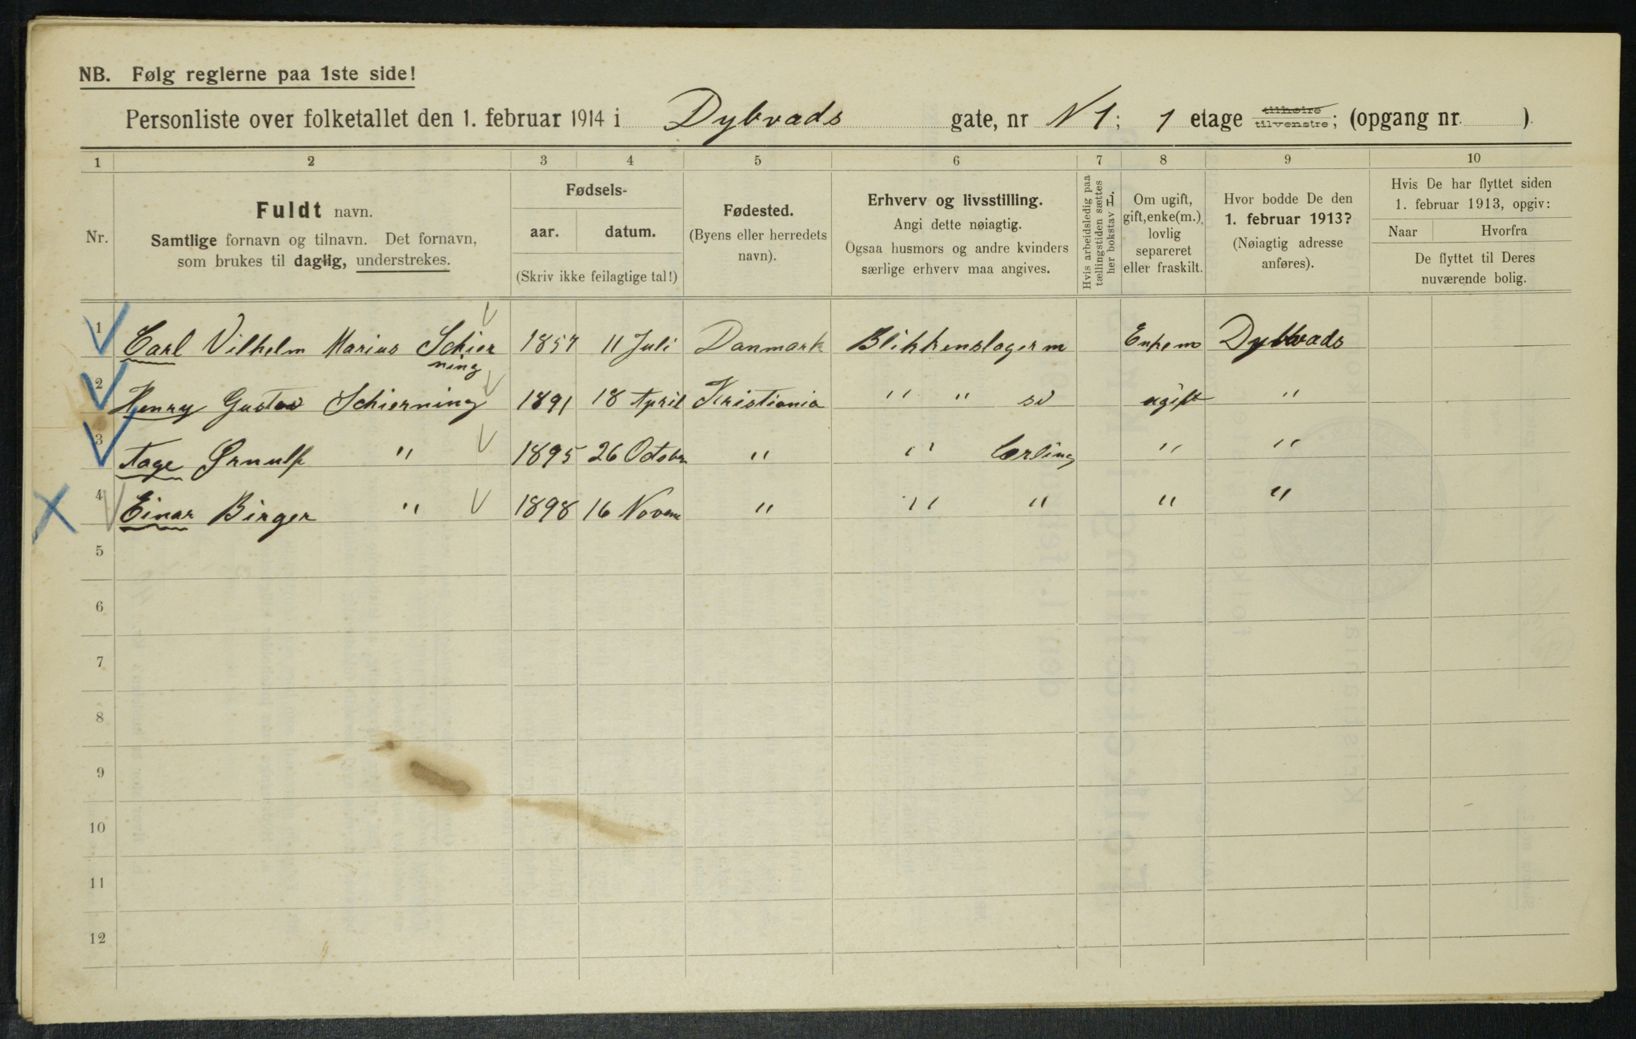 NB. Følg reglerne paa 1ste side!
Personliste over folketallet den 1. februar 1914 i Dybvads gate, nr N 1; 1 etage tilhøire tilvenstre; (opgang nr. )
1 2 3 4 5 6 7 8 9 10
Nr.
Fuldt navn.
Samtlige fornavn og tilnavn. Det fornavn,
som brukes til daglig, understrekes.
Fødsels-
aar. datum.
(Skriv ikke feilagtige tal!)
Fødested.
(Byens eller herredets
navn).
Erhverv og livsstilling.
Angi dette nøiagtig.
Ogsaa husmors og andre kvinders
særlige erhverv maa angives.
Hvis arbeidsledig paa
tællingstiden sættes
her bokstav L.
Om ugift,
gift, enke(m.),
lovlig
separeret
eller fraskilt.
Hvor bodde De den
1. februar 1913?
(Nøiagtig adresse
anføres).
Hvis De har flyttet siden
1. februar 1913, opgiv:
Naar Hvorfra
De flyttet til Deres
nuværende bolig.
1 Carl Vilhelm Marius Schier 1857 11 Juli Danmark Blikkenslager m Enkem Dybvads
ning
2 Henry Gustav Schierning 1891 18 April Kristiania " " sv ugift "
3 Tage Ørnulf " 1895 26 Octobr " " Lærling " "
4 Einar Birger " 1898 16 Novem " " " " "
5
6
7
8
9
10
11
12